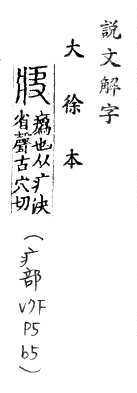 説文解字
大徐本
𤵸
瘑也从疒決
省聲古穴切
(疒部
V7F
P5
b5)